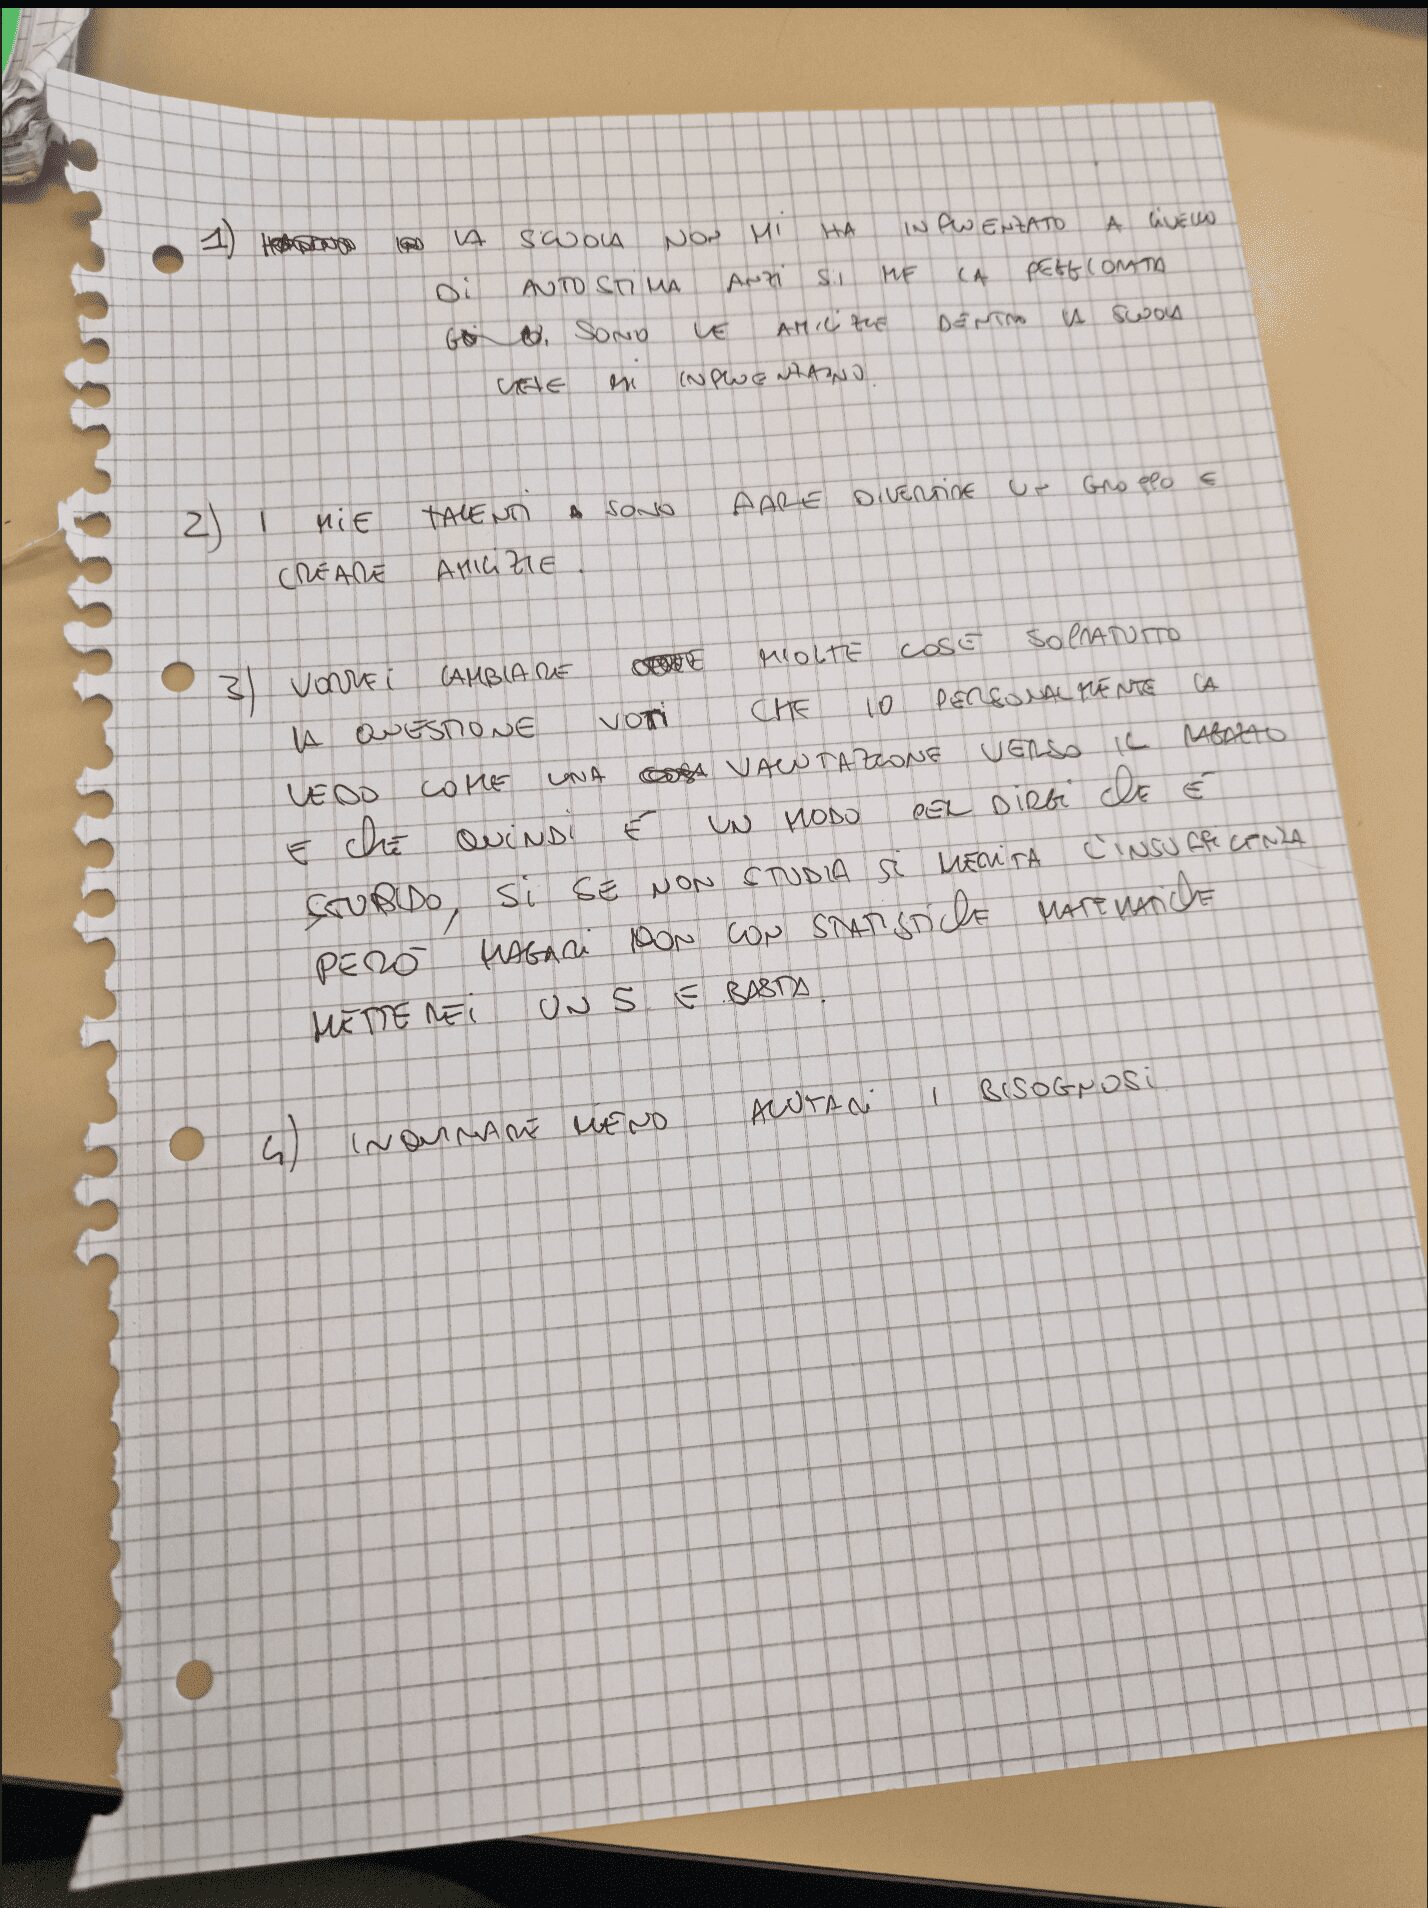 1) LA SCUOLA NON MI HA INFLUENZATO A LIVELLO
DI AUTOSTIMA ANZI SI ME LA PEGGIORATA
SONO LE AMICIZIE DENTRO LA SCUOLA
MI INFLUENZANO.
2) I MIE TALENTI SONO FARE DIVERTIRE UN GROPPO E
CREARE AMICIZIE.
3) VORREI CAMBIARE MOLTE COSE SOPRATUTTO
LA QUESTIONE VOTI CHE IO PERSONALMENTE LA
VEDO COME UNA VALUTAZIONE VERSO IL RAGAZZO
E CHE QUINDI É UN MODO PER DIRGLI CHE É
STUPIDO, SI SE NON STUDIA SI MERITA L'INSUFFICENZA
PERÒ MAGARI NON CON STATISTICHE MATEMATICHE
METTEREI UN 5 E BASTA.
4) INQUINARE MENO AIUTARI I BISOGNOSI